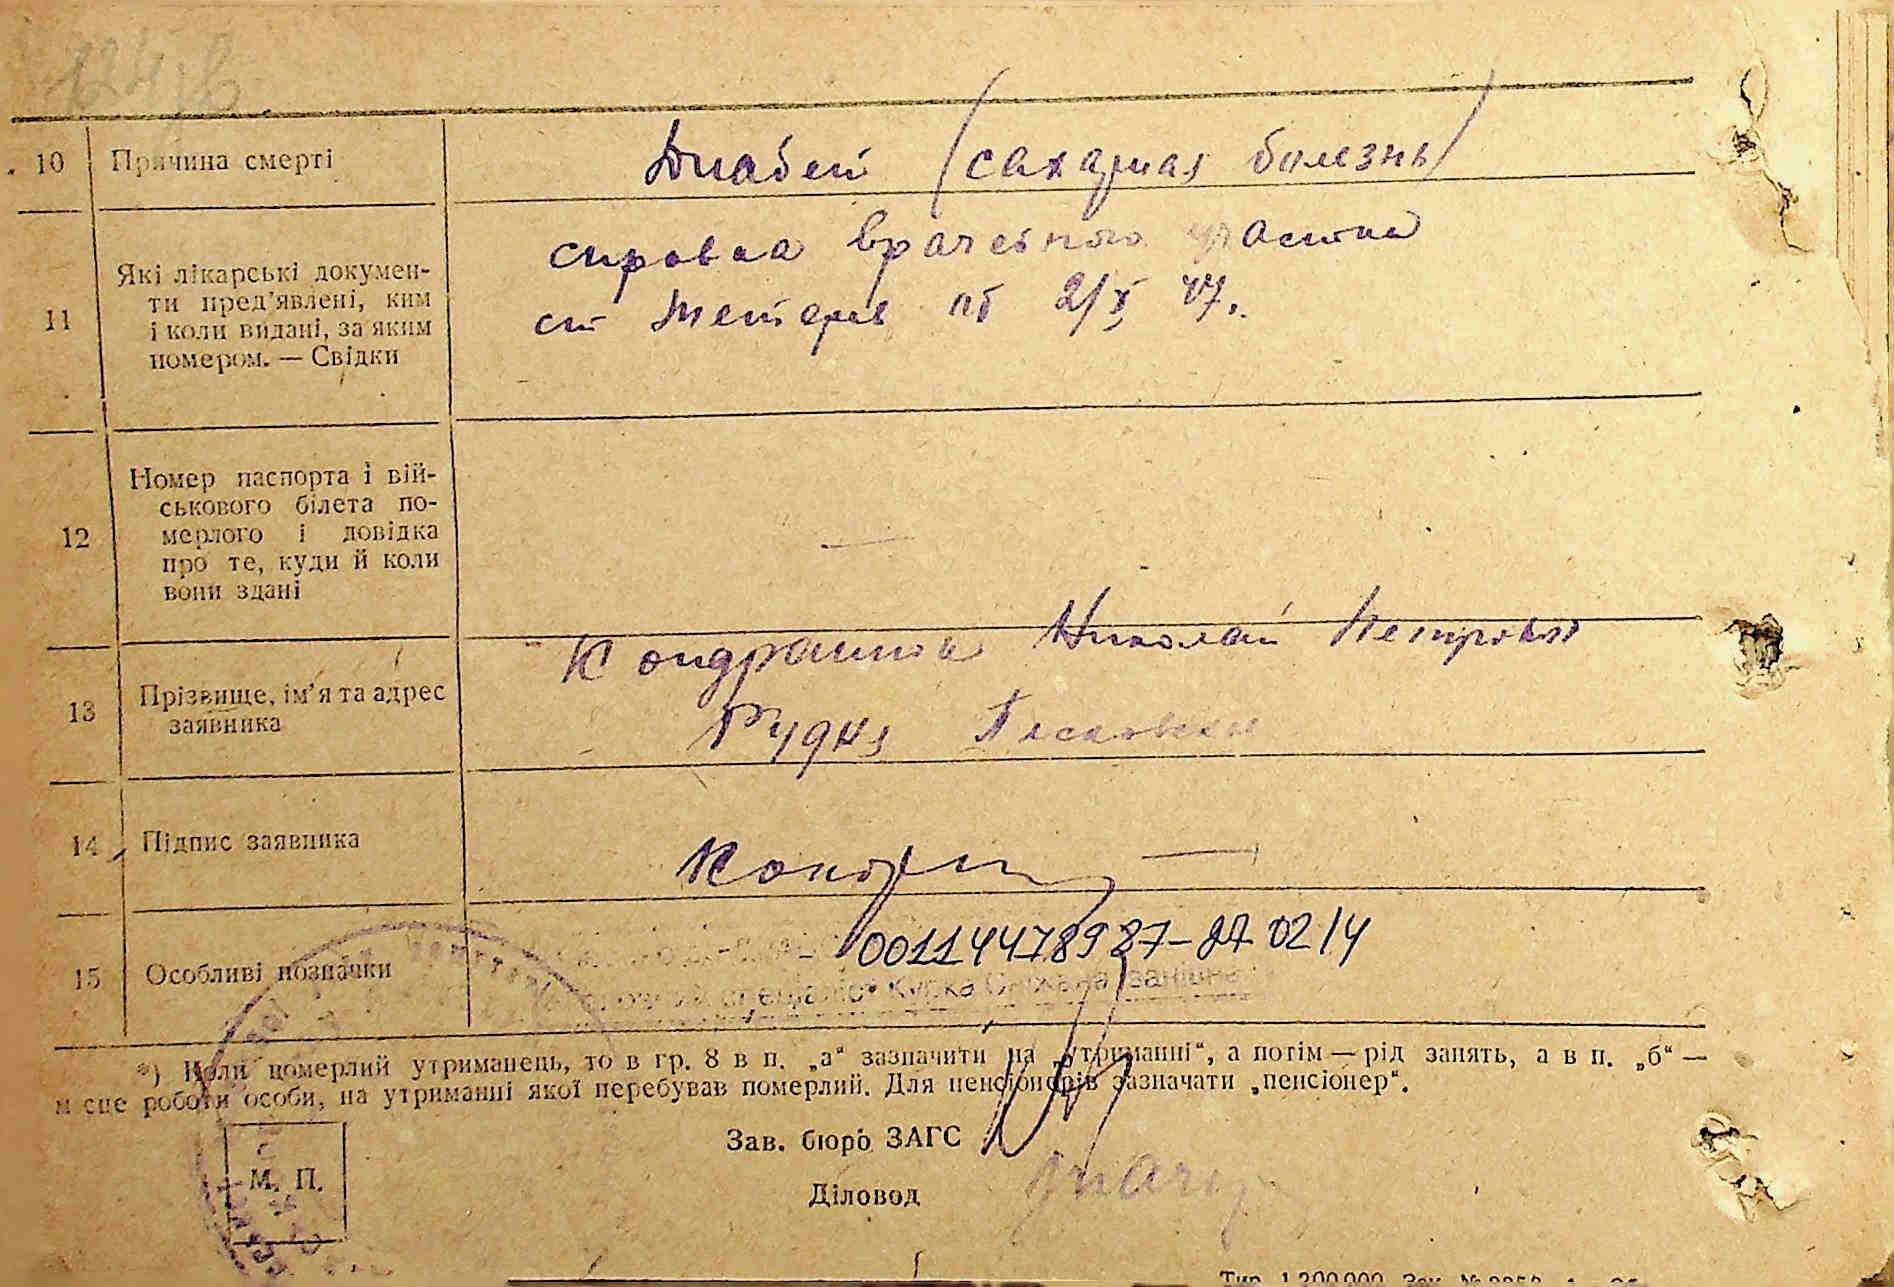 10 Причина смерті
Диабет (сахарная болезнь)
11 Які лікарські докумен-
ти пред'явлені, ким
і коли видані, за яким
номером. — Свідки
справка врачебного участка
ст Тетерев от 2/X 47.
12 Номер паспорта і вій-
ськового білета по-
мерлого і довідка
про те, куди й коли
вони здані
—
13 Прізвище, ім'я та адрес
заявника
Николай Петрович
Рудня Песковская
14 Підпис заявника
15 Особливі позначки
00114478987-27 02 14
*) Коли померлий утриманець, то в гр. 8 в п. „а“ зазначити на „утриманні“, а потім — рід занять, а в п. „б“ —
місце роботи особи, на утриманні якої перебував померлий. Для пенсіонерів зазначати „пенсіонер“.
Зав. бюро ЗАГС
М. П.
Діловод